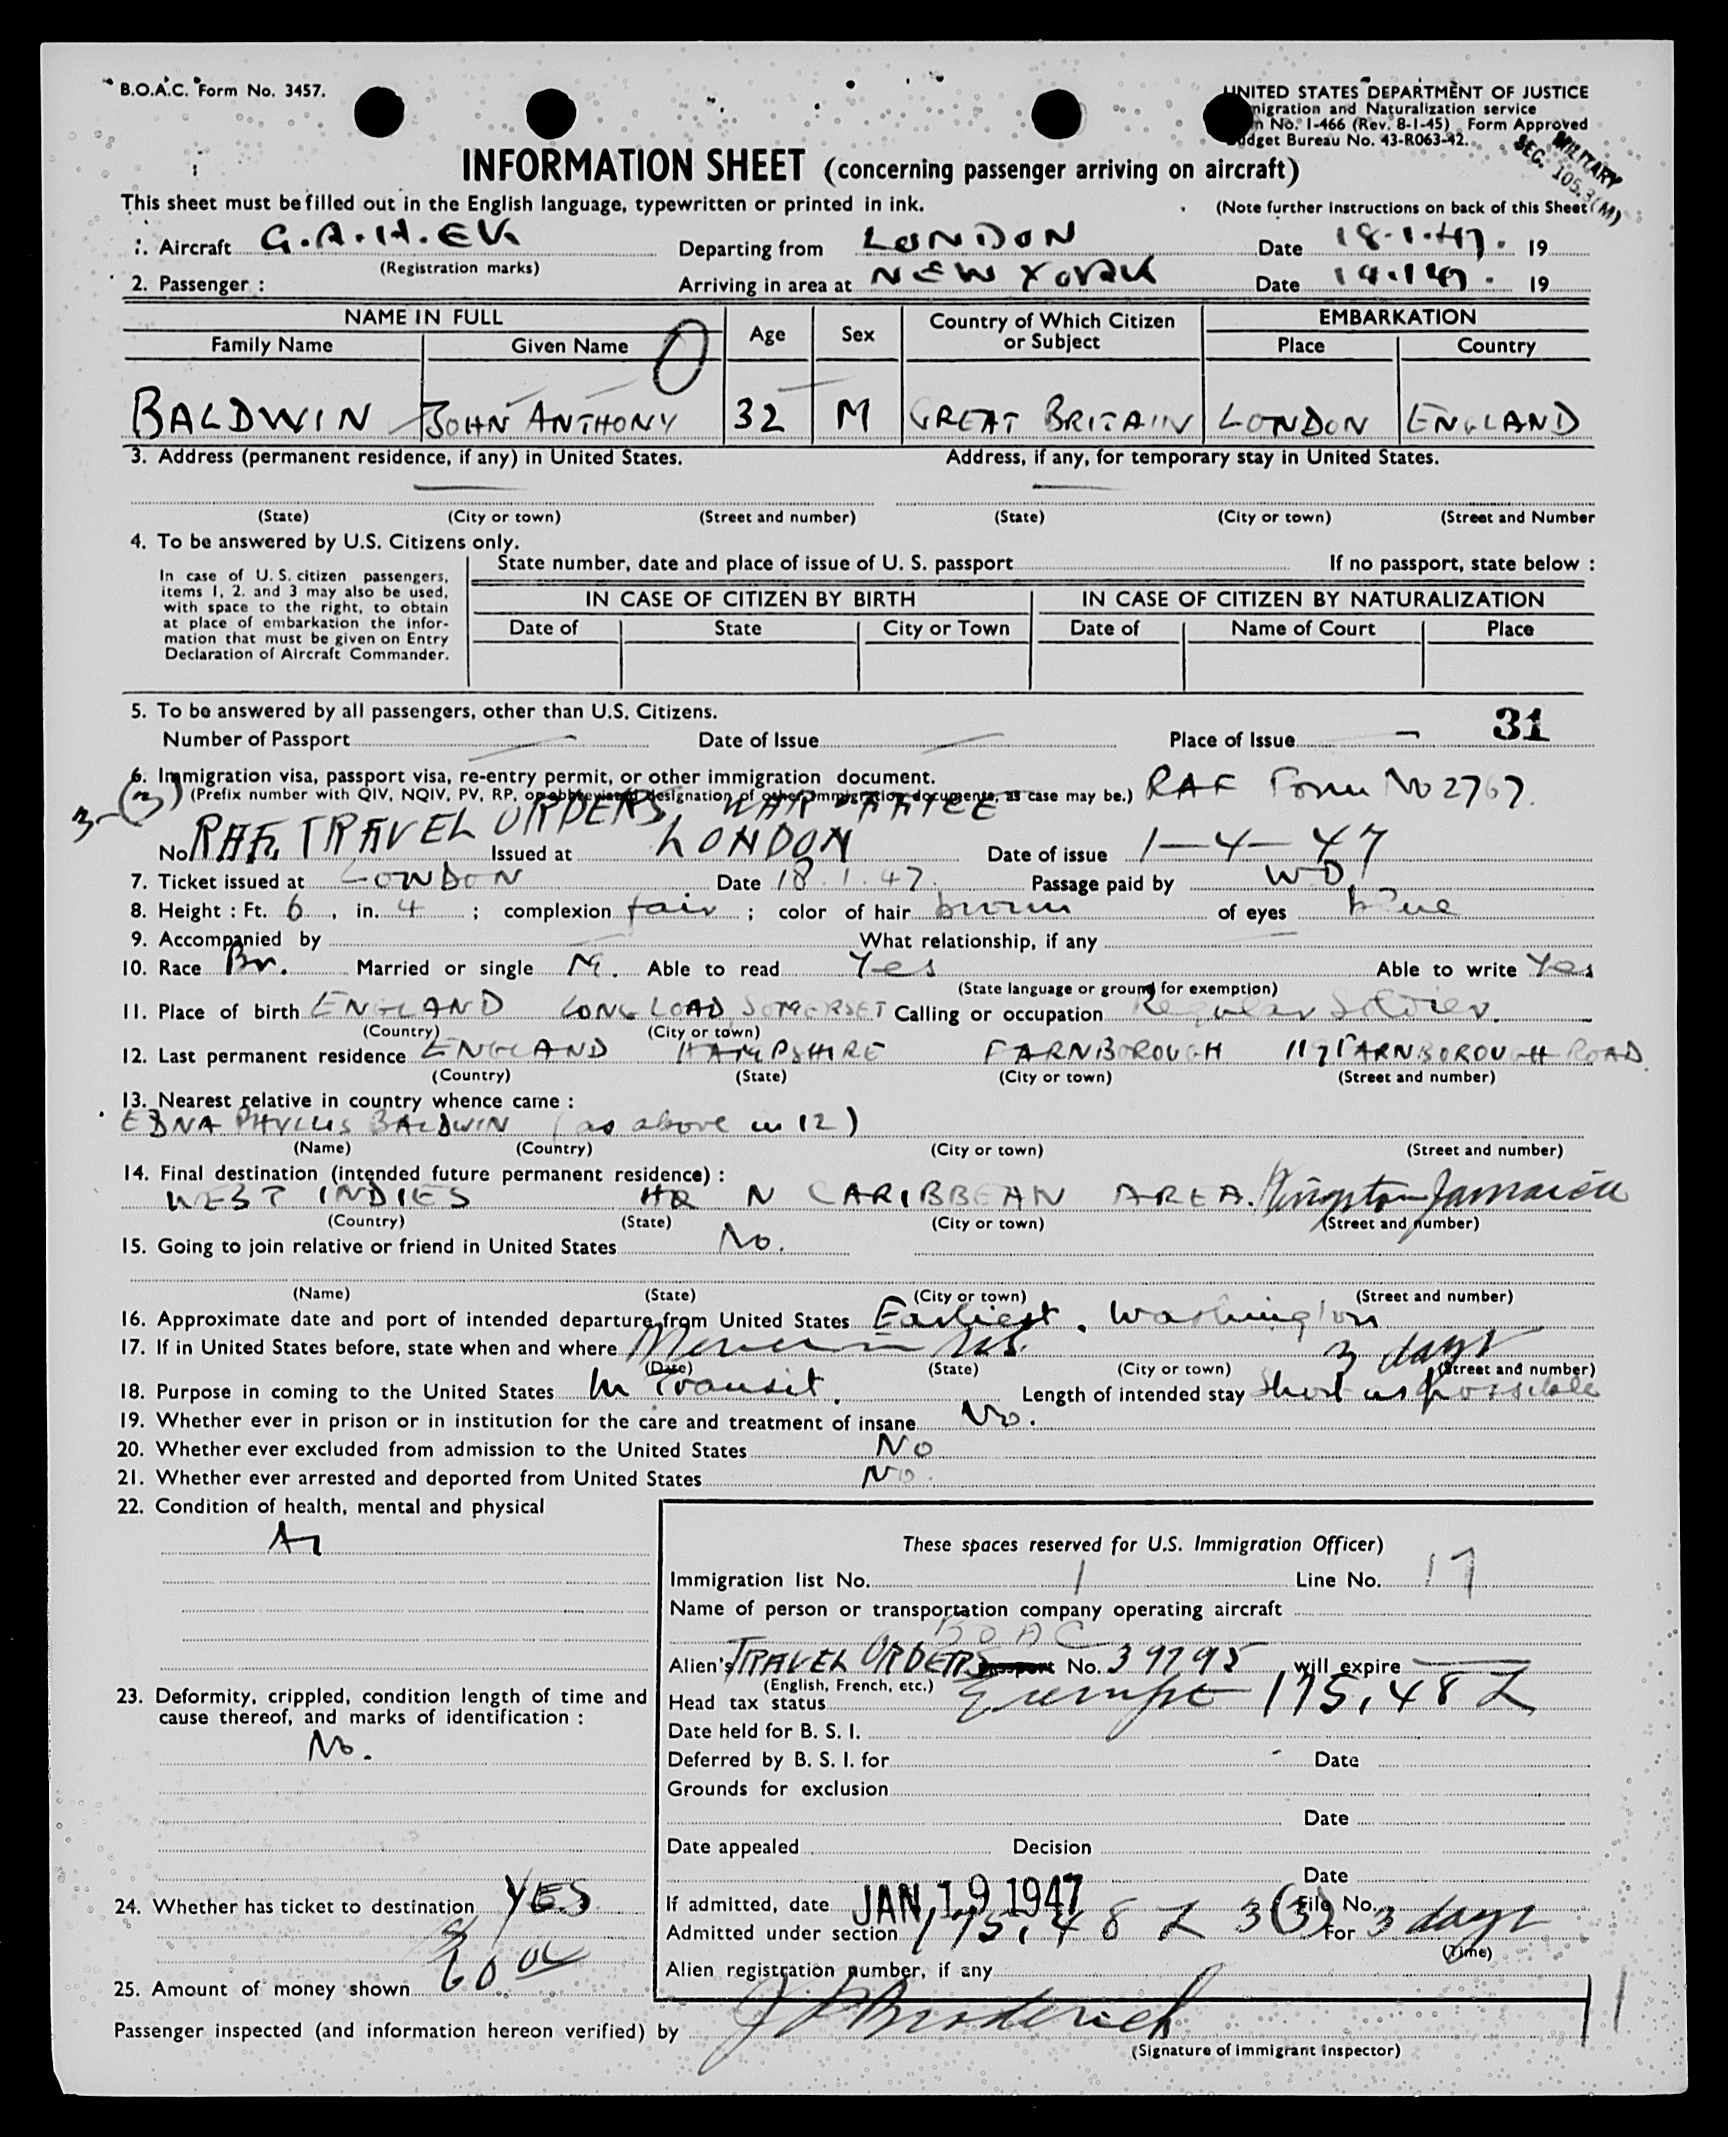 B.O.A.C. Form No. 3457.
UNITED STATES DEPARTMENT OF JUSTICE
migration and Naturalization service
No. I-466 (Rev. 8-1-45) Form Approved
Budget Bureau No. 43-R063-42.
MILITARY
SEC. 105.3(M)
INFORMATION SHEET (concerning passenger arriving on aircraft)
This sheet must be filled out in the English language, typewritten or printed in ink.
(Note further instructions on back of this Sheet)
1. Aircraft G.A.H.EK Departing from LONDON Date 18.1.47. 19
(Registration marks)
2. Passenger : Arriving in area at NEW YORK Date 19.1.47. 19
NAME IN FULL Age Sex Country of Which Citizen or Subject EMBARKATION
Family Name Given Name Place Country
BALDWIN JOHN ANTHONY 32 M GREAT BRITAIN LONDON ENGLAND
3. Address (permanent residence, if any) in United States. Address, if any, for temporary stay in United States.
(State) (City or town) (Street and number) (State) (City or town) (Street and Number
4. To be answered by U.S. Citizens only.
State number, date and place of issue of U. S. passport If no passport, state below :
In case of U. S. citizen passengers,
items 1, 2. and 3 may also be used,
with space to the right, to obtain
at place of embarkation the infor-
mation that must be given on Entry
Declaration of Aircraft Commander.
IN CASE OF CITIZEN BY BIRTH IN CASE OF CITIZEN BY NATURALIZATION
Date of State City or Town Date of Name of Court Place
5. To be answered by all passengers, other than U.S. Citizens.
31
Number of Passport Date of Issue Place of Issue
6. Immigration visa, passport visa, re-entry permit, or other immigration document.
(Prefix number with QIV, NQIV, PV, RP, or abbreviated designation of other immigration documents, as case may be.) RAF Form No 2767.
3-(3)
No RAF. TRAVEL ORDERS, WAR OFFICE Issued at LONDON Date of issue 1-4-47
7. Ticket issued at LONDON Date 18.1.47. Passage paid by WD.
8. Height : Ft. 6, in. 4 ; complexion fair ; color of hair brown of eyes blue
9. Accompanied by What relationship, if any
10. Race Br. Married or single M. Able to read Yes Able to write Yes
(State language or ground for exemption)
11. Place of birth ENGLAND LONG LOAD, SOMERSET Calling or occupation Regular Soldier.
(Country) (City or town)
12. Last permanent residence ENGLAND HAMPSHIRE FARNBOROUGH 117 FARNBOROUGH ROAD.
(Country) (State) (City or town) (Street and number)
13. Nearest relative in country whence came :
EDNA PHYLLIS BALDWIN (as above in 12)
(Name) (Country) (City or town) (Street and number)
14. Final destination (intended future permanent residence) :
WEST INDIES HQ N CARIBBEAN AREA. Kingston Jamaica
(Country) (State) (City or town) (Street and number)
15. Going to join relative or friend in United States No.
(Name) (State) (City or town) (Street and number)
16. Approximate date and port of intended departure from United States Earliest. Washington
17. If in United States before, state when and where Never in US.
(Date) (State) (City or town) (Street and number)
3 days
18. Purpose in coming to the United States In Transit. Length of intended stay Short as possible
19. Whether ever in prison or in institution for the care and treatment of insane No.
20. Whether ever excluded from admission to the United States No
21. Whether ever arrested and deported from United States No.
22. Condition of health, mental and physical
A1
These spaces reserved for U.S. Immigration Officer)
Immigration list No. 1 Line No. 17
Name of person or transportation company operating aircraft
BOAC
Alien's TRAVEL ORDERS passport No. 39795 will expire
(English, French, etc.)
23. Deformity, crippled, condition length of time and
cause thereof, and marks of identification :
No.
Head tax status Exempt 175.48 Z
Date held for B. S. I.
Deferred by B. S. I. for Date
Grounds for exclusion
Date
Date appealed Decision
Date
24. Whether has ticket to destination YES
If admitted, date JAN 19 1947 File No.
Admitted under section 175.48 Z 3(3) For 3 days
(Time)
Alien registration number, if any
25. Amount of money shown 60 00
Passenger inspected (and information hereon verified) by J P Broderick
(Signature of immigrant inspector)